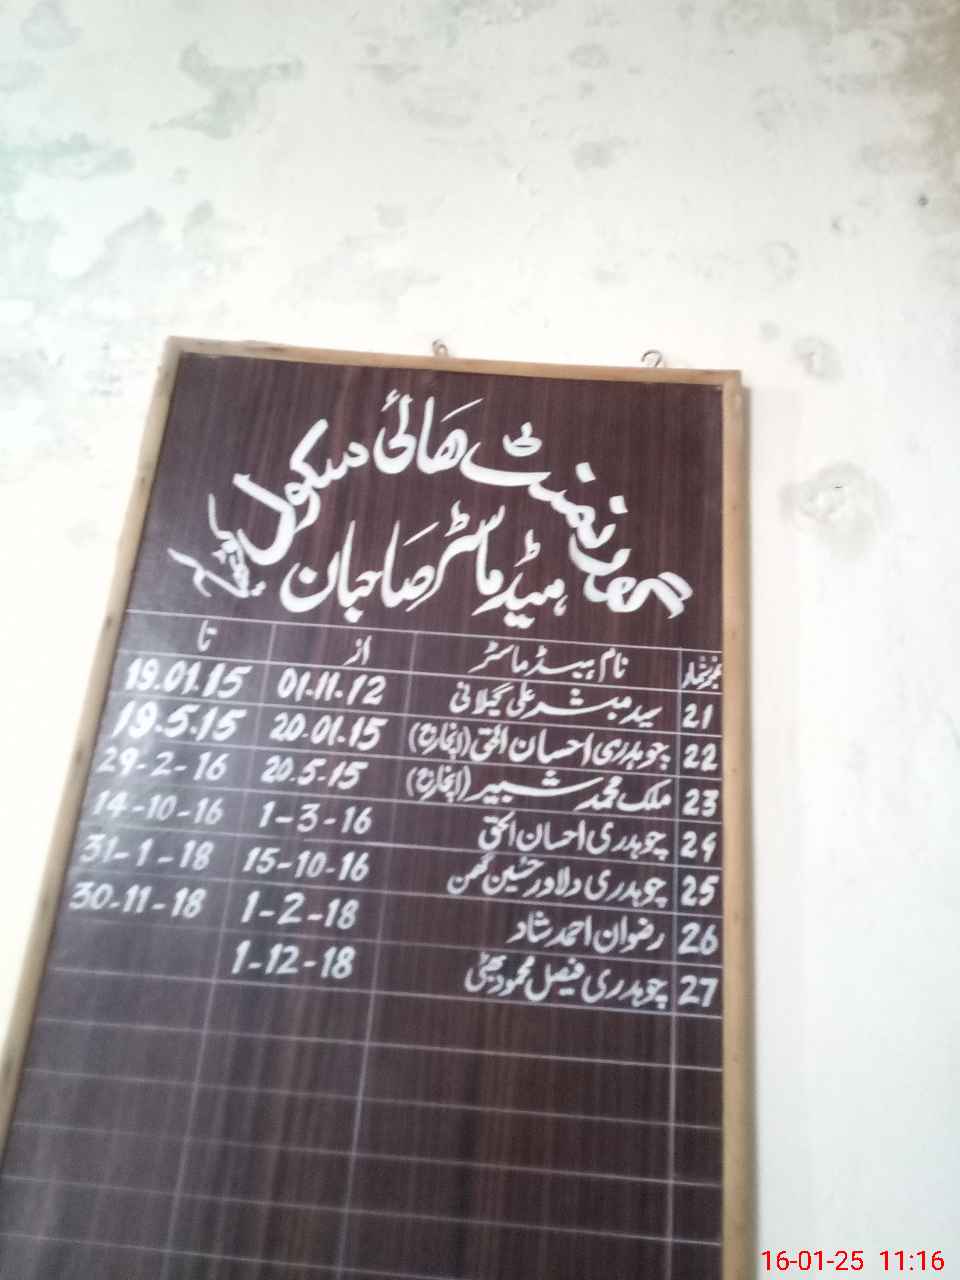 گورنمنٹ ھائی سکول
ہیڈ ماسٹر صاحبان
نمبر شمار نام ہیڈ ماسٹر از تا
21 سید مبشر علی گیلانی 01.11.12 19.01.15
22 چوہدری احسان الحق (انچارج) 20.01.15 19.5.15
23 ملک محمد شبیر (انچارج) 20.5.15 29-2-16
24 چوہدری احسان الحق 1-3-16 14-10-16
25 چوہدری دلاور حسین گھمن 15-10-16 31-1-18
26 رضوان احمد شاد 1-2-18 30-11-18
27 چوہدری فیصل محمود بھٹی 1-12-18
16-01-25 11:16